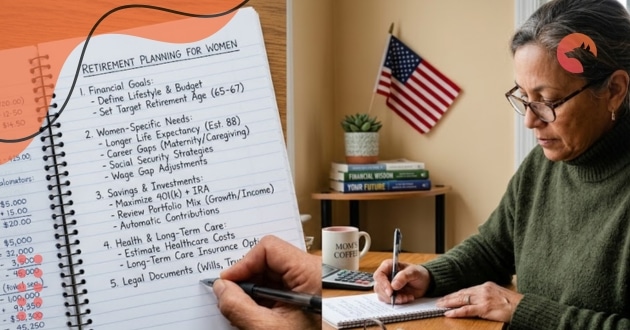 RETIREMENT PLANNING FOR WOMEN
1. Financial Goals:
- Define Lifestyle & Budget
- Set Target Retirement Age (65-67)
2. Women-Specific Needs:
- Longer Life Expectancy (Est. 88)
- Career Gaps (Maternity/Caregiving)
- Social Security Strategies
- Wage Gap Adjustments
3. Savings & Investments:
- Maximize 401(k) + IRA
- Review Portfolio Mix (Growth/Income)
- Automatic Contributions
4. Health & Long-Term Care:
- Estimate Healthcare Costs
- Long-Term Care Insurance Opti
5. Legal Documents (Wills, Trus
12.50
$5,000
+ 15.00
$20.00
$5,000
32,000
1,00,000
45,250
FINANCIAL WISDOM
YOUR FUTURE
MOM'S
COFFEE